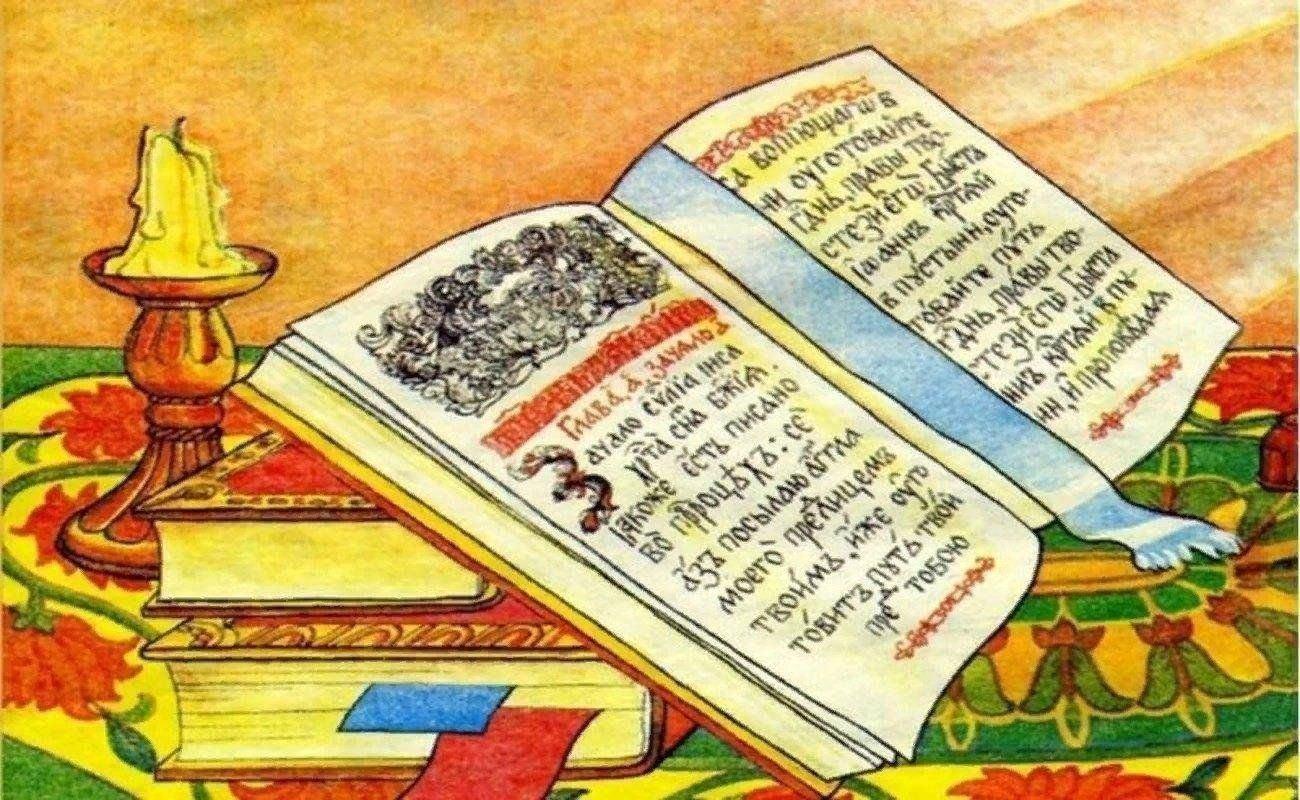 Глава̀, а҃, зачало, а҃
Зачало єѵ҃лїа іиса
хрⷭ҇та сн҃а бж҃їѧ.
Ꙗкоже є҆сть писано
во прⷪ҇роцѣхъ: сѐ
а҆зъ посылаю а҆гг҃ла
моего предⷧ҇ лицемъ
твои́мъ, и҆же оуго
то́витъ пу́ть тво́й
предⷣ тобою
са вопїющагѡ в
ни, оугото́вайте
гд҃нь, пра́вы тво-
стезѝ є҆гѡ̀. Быста
Іѡаннъ крⷭ҇тай
в пу́стыни, оуго-
товаите пу́ть
гд҃нь, пра́вы тво-
стезѝ єгѡ̀. Быста
ннъ крⷭ҇тай в пу-
ни, и҆ проповѣдаѧ